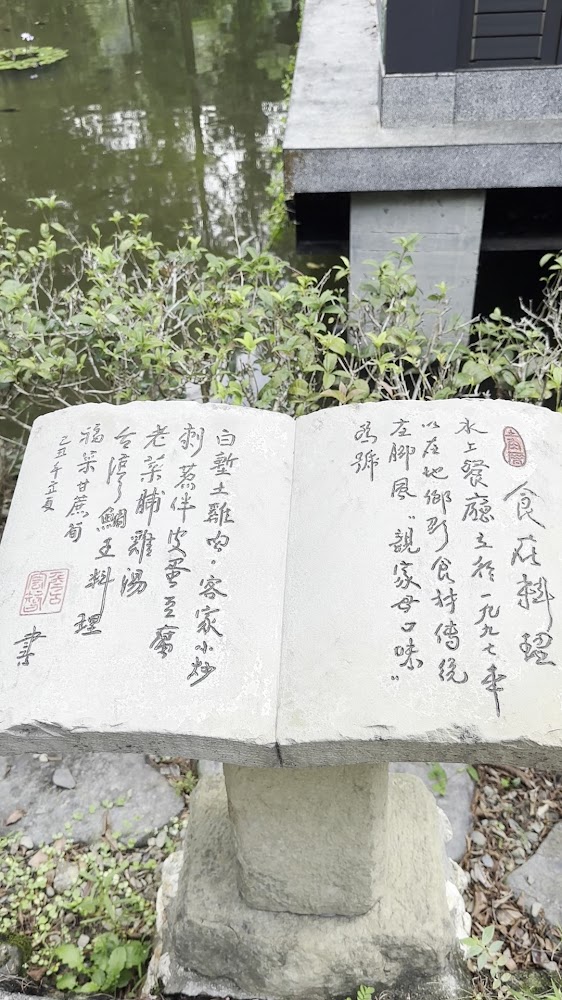 食在料理
水上餐廳立於一九九七年
以在地鄉野食材傳統
庄腳風“親家母口味”
為號
白塹土雞肉。客家小炒
刺蔥伴皮蛋豆腐
老菜脯雞湯
台灣鯛王料理
福菜甘蔗筍
己丑年立夏
書